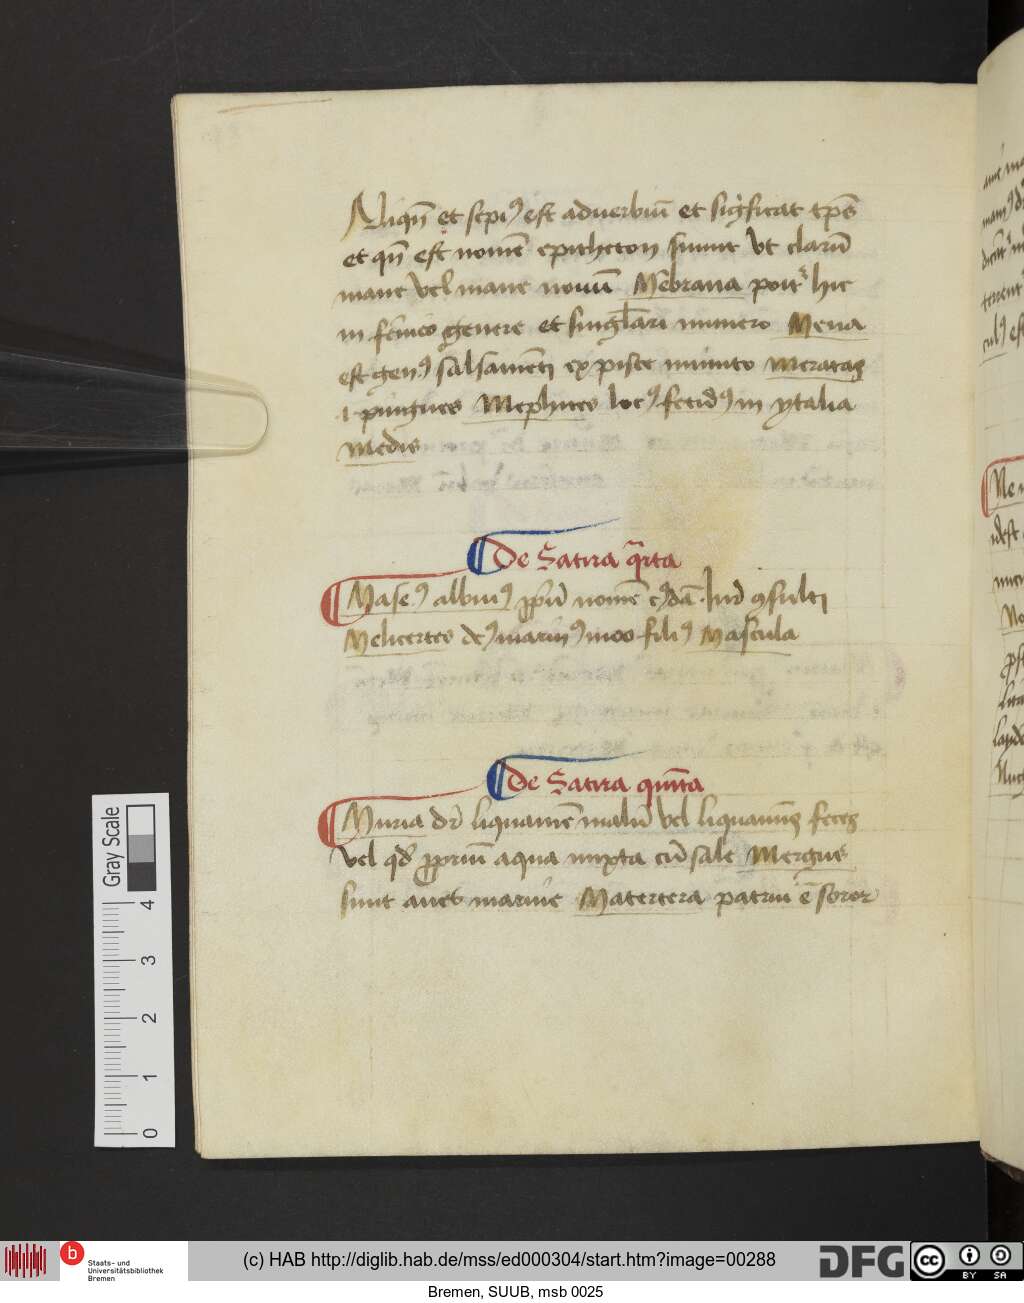 Aliqn̄ et sepiꝰ est aduerbiū et sig̾ficat tp̄s
et qn̄ est nomē epitheton sunt vt clarū
mane vel mane nouū Mēbrana poit̾ hic
in femīeo genere et singl̄ari numero Mena
est genꝰ salsamēti ex pisce minuto Meratas
.i. pingues Mephites locꝰ fetidꝰ in ytalia
Medis
De Satira q̄rta
Maseꝰ albinꝰ ꝓpriū nomē cꝰdā Iurꝭ ꝯsulti
Melicertes deꝰ marinꝰ inoo filiꝰ Mascula
De Satira quīta
Muria dr̄ liquamē malū vel liquaminis feces
vel qd̄ ꝓpriū aqua mixta cū sale Mergus
sunt aues marine Matertera patrui ē soror
Gray Scale
4
3
2
1
0
b Staats- und
Universitätsbibliothek
Bremen
(c) HAB http://diglib.hab.de/mss/ed000304/start.htm?image=00288
DFG
cc BY SA
Bremen, SUUB, msb 0025